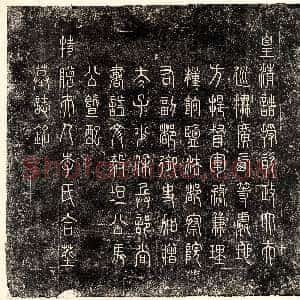 皇清誥授資政大夫
巡撫廣西等處地
方提督軍務兼理
糧餉鹽法都察院
右副都御史加贈
太子少保兵部尚
書諡文毅坦公馬
公暨配
贈夫人李氏合葬
墓誌銘